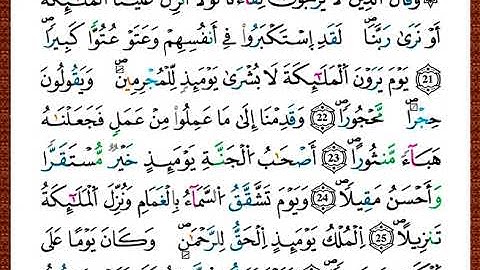 وَقَالَ اَ۬لذِينَ لَا يَرْجُونَ لِقَآءَنَا لَوْلَآ أُنزِلَ عَلَيْنَا اَ۬لْمَلَٰٓئِكَةُ
أَوْ نَر۪يٰ رَبَّنَاۖ لَقَدِ اِ۪سْتَكْبَرُواْ فِےٓ أَنفُسِهِمْ وَعَتَوْ عُتُوّاٗ كَبِيراٗۖ
21 يَوْمَ يَرَوْنَ اَ۬لْمَلَٰٓئِكَةَ لَا بُشْر۪يٰ يَوْمَئِذٖ لِّلْمُجْرِمِينَۖ وَيَقُولُونَ
حِجْراٗ مَّحْجُوراٗۖ 22 وَقَدِمْنَآ إِلَيٰ مَا عَمِلُواْ مِنْ عَمَلٖ فَجَعَلْنَٰهُ
هَبَآءٗ مَّنثُوراًۖ 23 اَصْحَٰبُ اُ۬لْجَنَّةِ يَوْمَئِذٍ خَيْرٞ مُّسْتَقَرّاٗ
وَأَحْسَنُ مَقِيلاٗۖ 24 وَيَوْمَ تَشَّقَّقُ اُ۬لسَّمَآءُ بِالْغَمَٰمِ وَنُزِّلَ اَ۬لْمَلَٰٓئِكَةُ
تَنزِيلاًۖ 25 اِ۬لْمُلْكُ يَوْمَئِذٍ اِ۬لْحَقُّ لِلرَّحْمَٰنِۖ وَكَانَ يَوْماً عَلَي